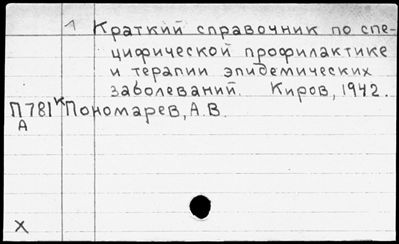 1 Краткий справочник по спе-
цифической профилактике
и терапии эпидемических
заболеваний. Киров, 1942.
П781к Пономарев, А.В.
А
X